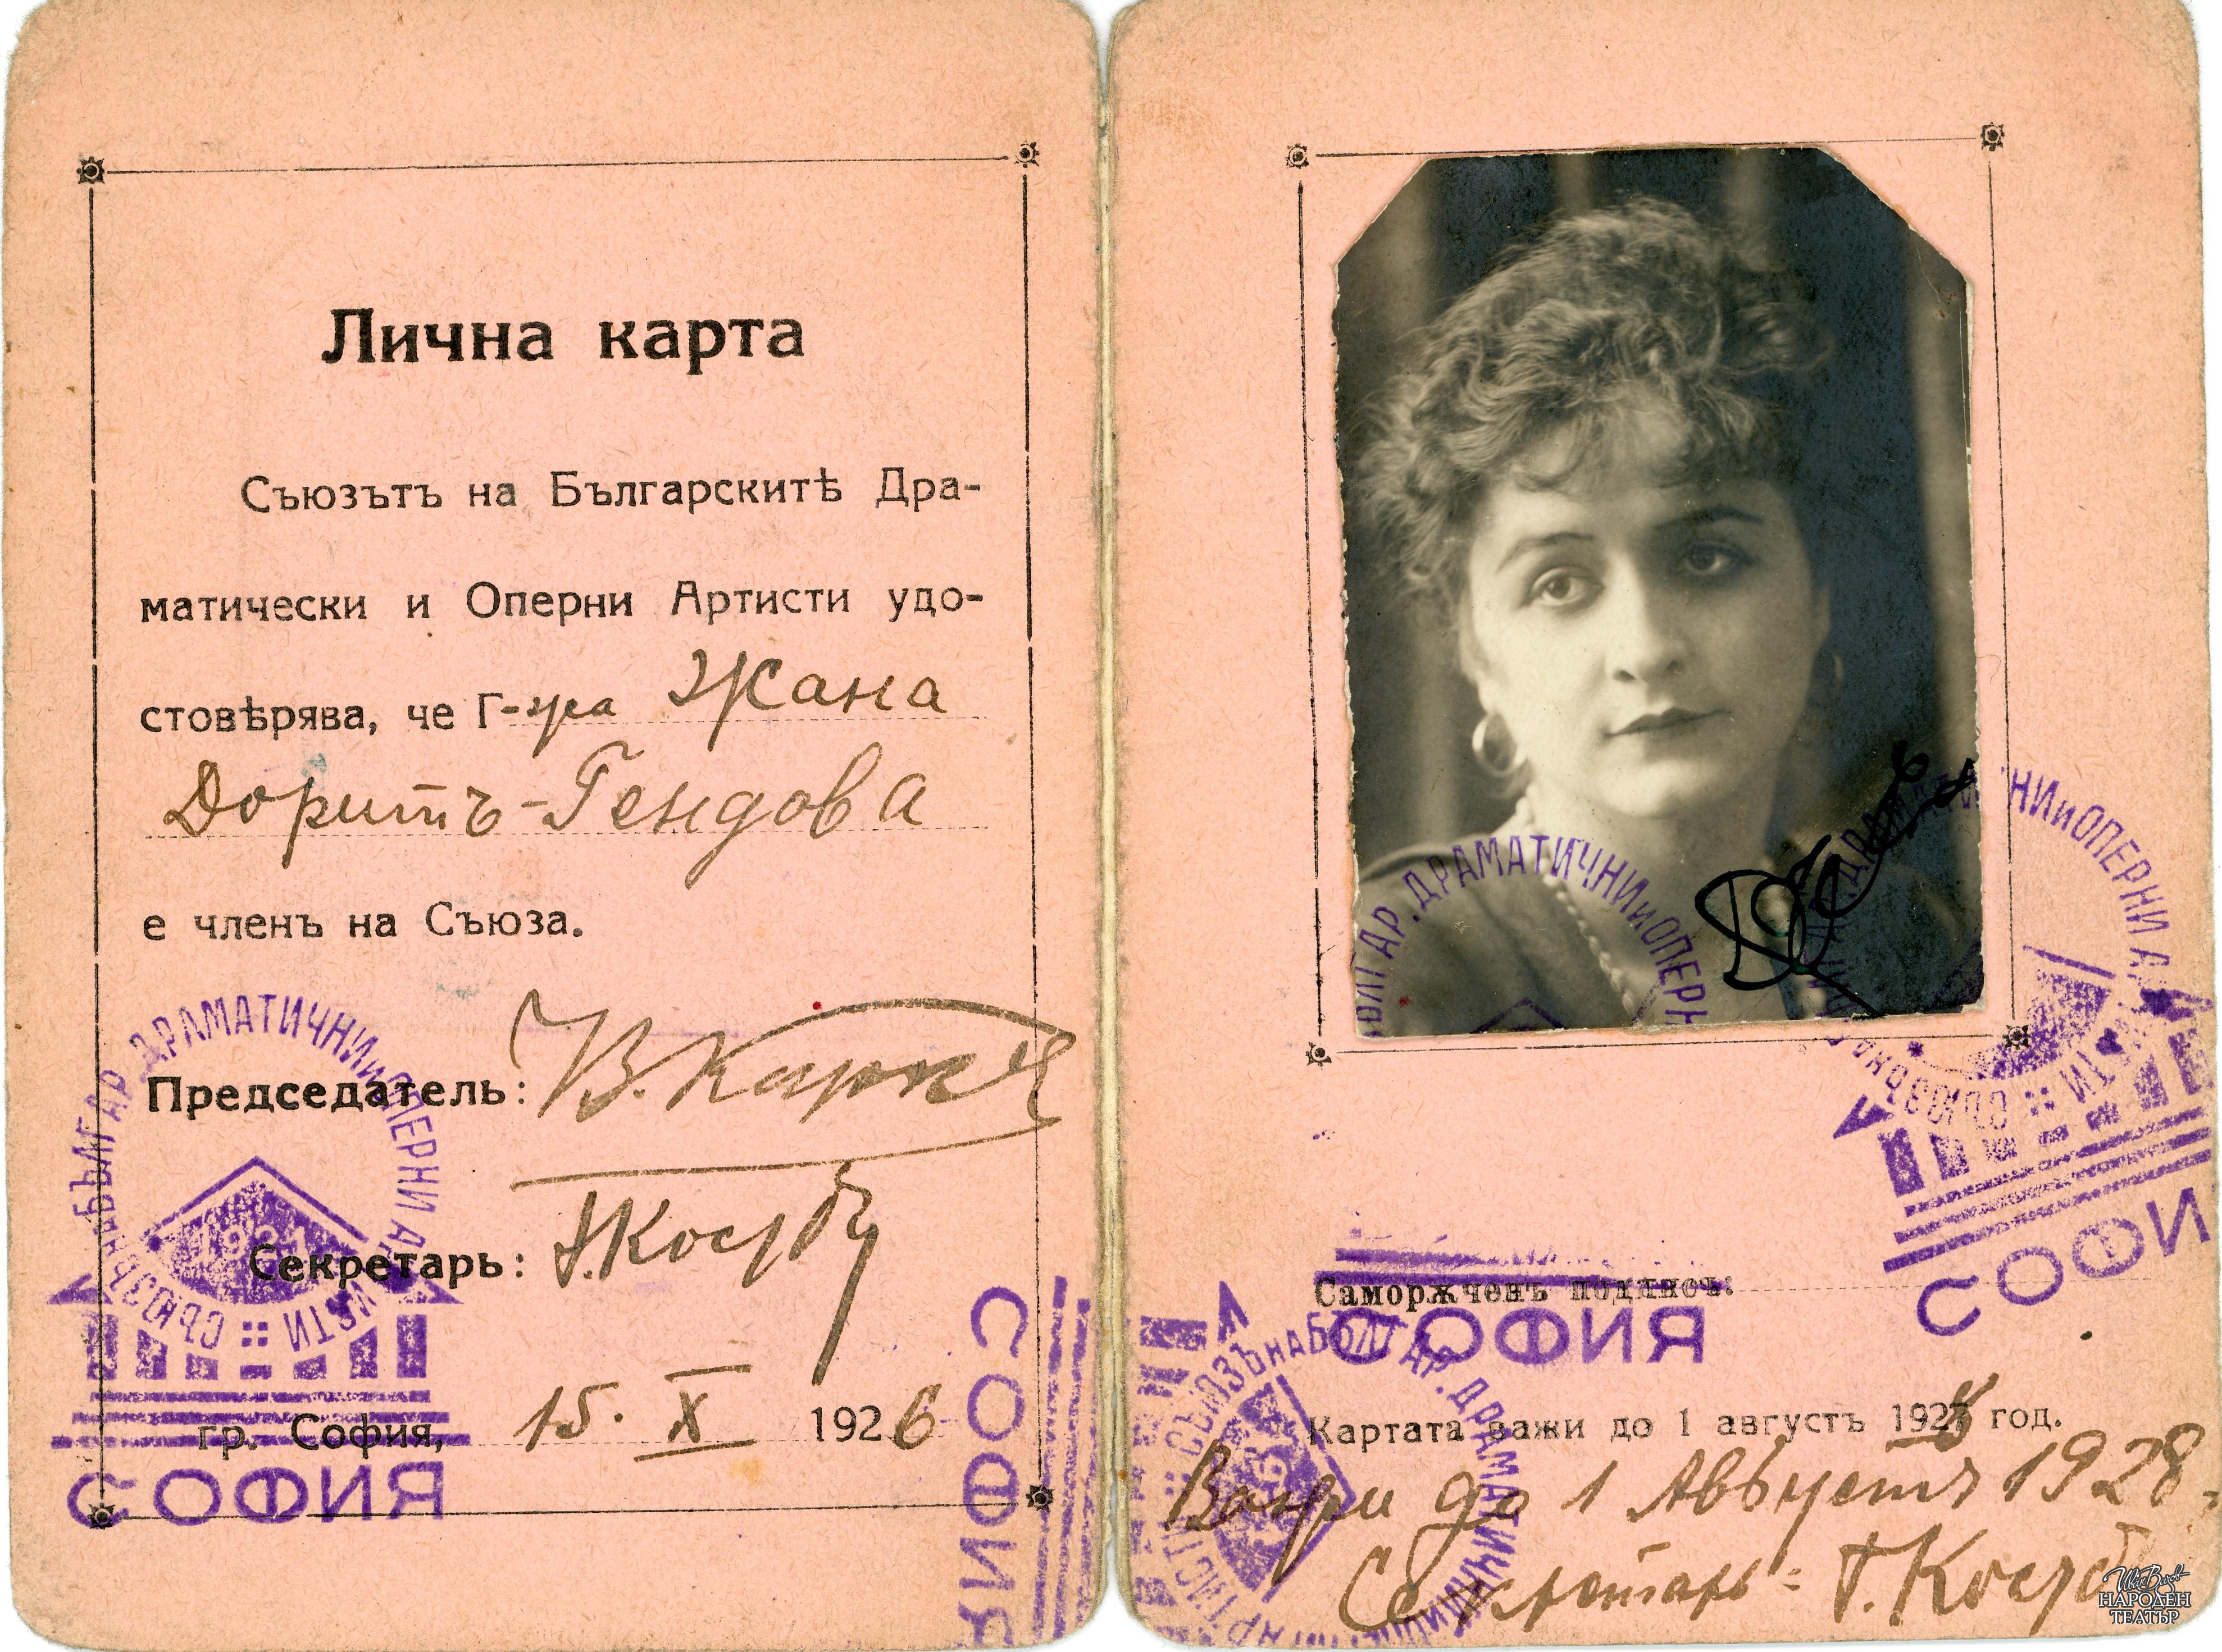 Лична карта
Съюзътъ на Българскитѣ Дра-
матически и Оперни Артисти удо-
стовѣрява, че Г-жа Жана
Доритъ-Гендова
е членъ на Съюза.
Председатель:
Секретарь:
гр. София, 15. X 1926
СОФИЯ
СЪЮЗЪ НА БЪЛГАР. ДРАМАТИЧНИ И ОПЕРНИ АРТИСТИ
СОФИЯ
БЪЛГАР. ДРАМАТИЧНИ И ОПЕРНИ
ДРАМАТИЧНИ И ОПЕРНИ
СОФИЯ
Саморѫченъ подписъ:
СОФИЯ
СЪЮЗЪ НА БЪЛГАР. ДРАМАТИЧНИ
Картата важи до 1 августъ 192 год.
Важи до 1 Августъ 1928
Секретарь:
НАРОДЕН
ТЕАТЪР